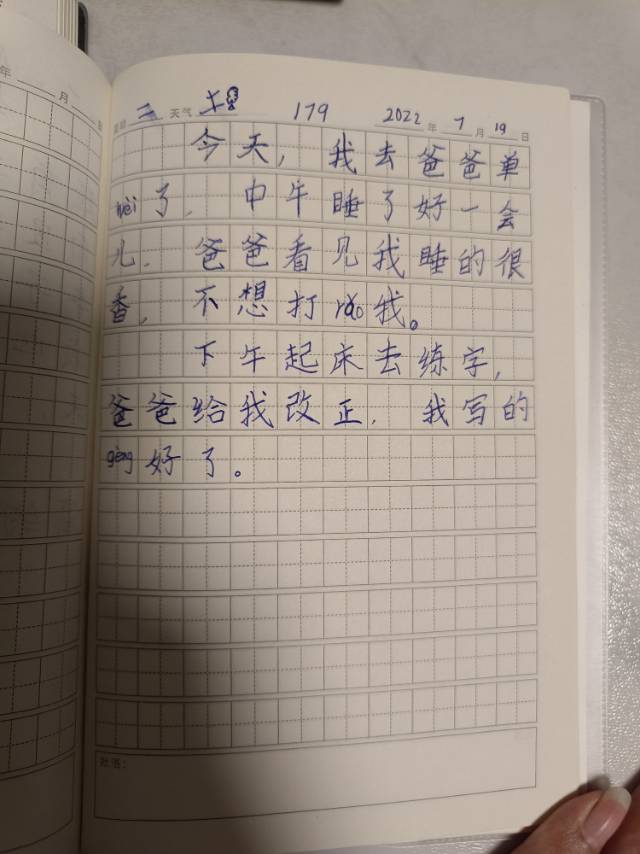 年 月 日
星期 二 天气 179 2022 年 7 月 19 日
今天，我去爸爸单
wèi了，中午睡了好一会
儿．爸爸看见我睡的很
香，不想打rǎo我。
下午起床去练字，
爸爸给我改正，我写的
gèng好了。
批语：